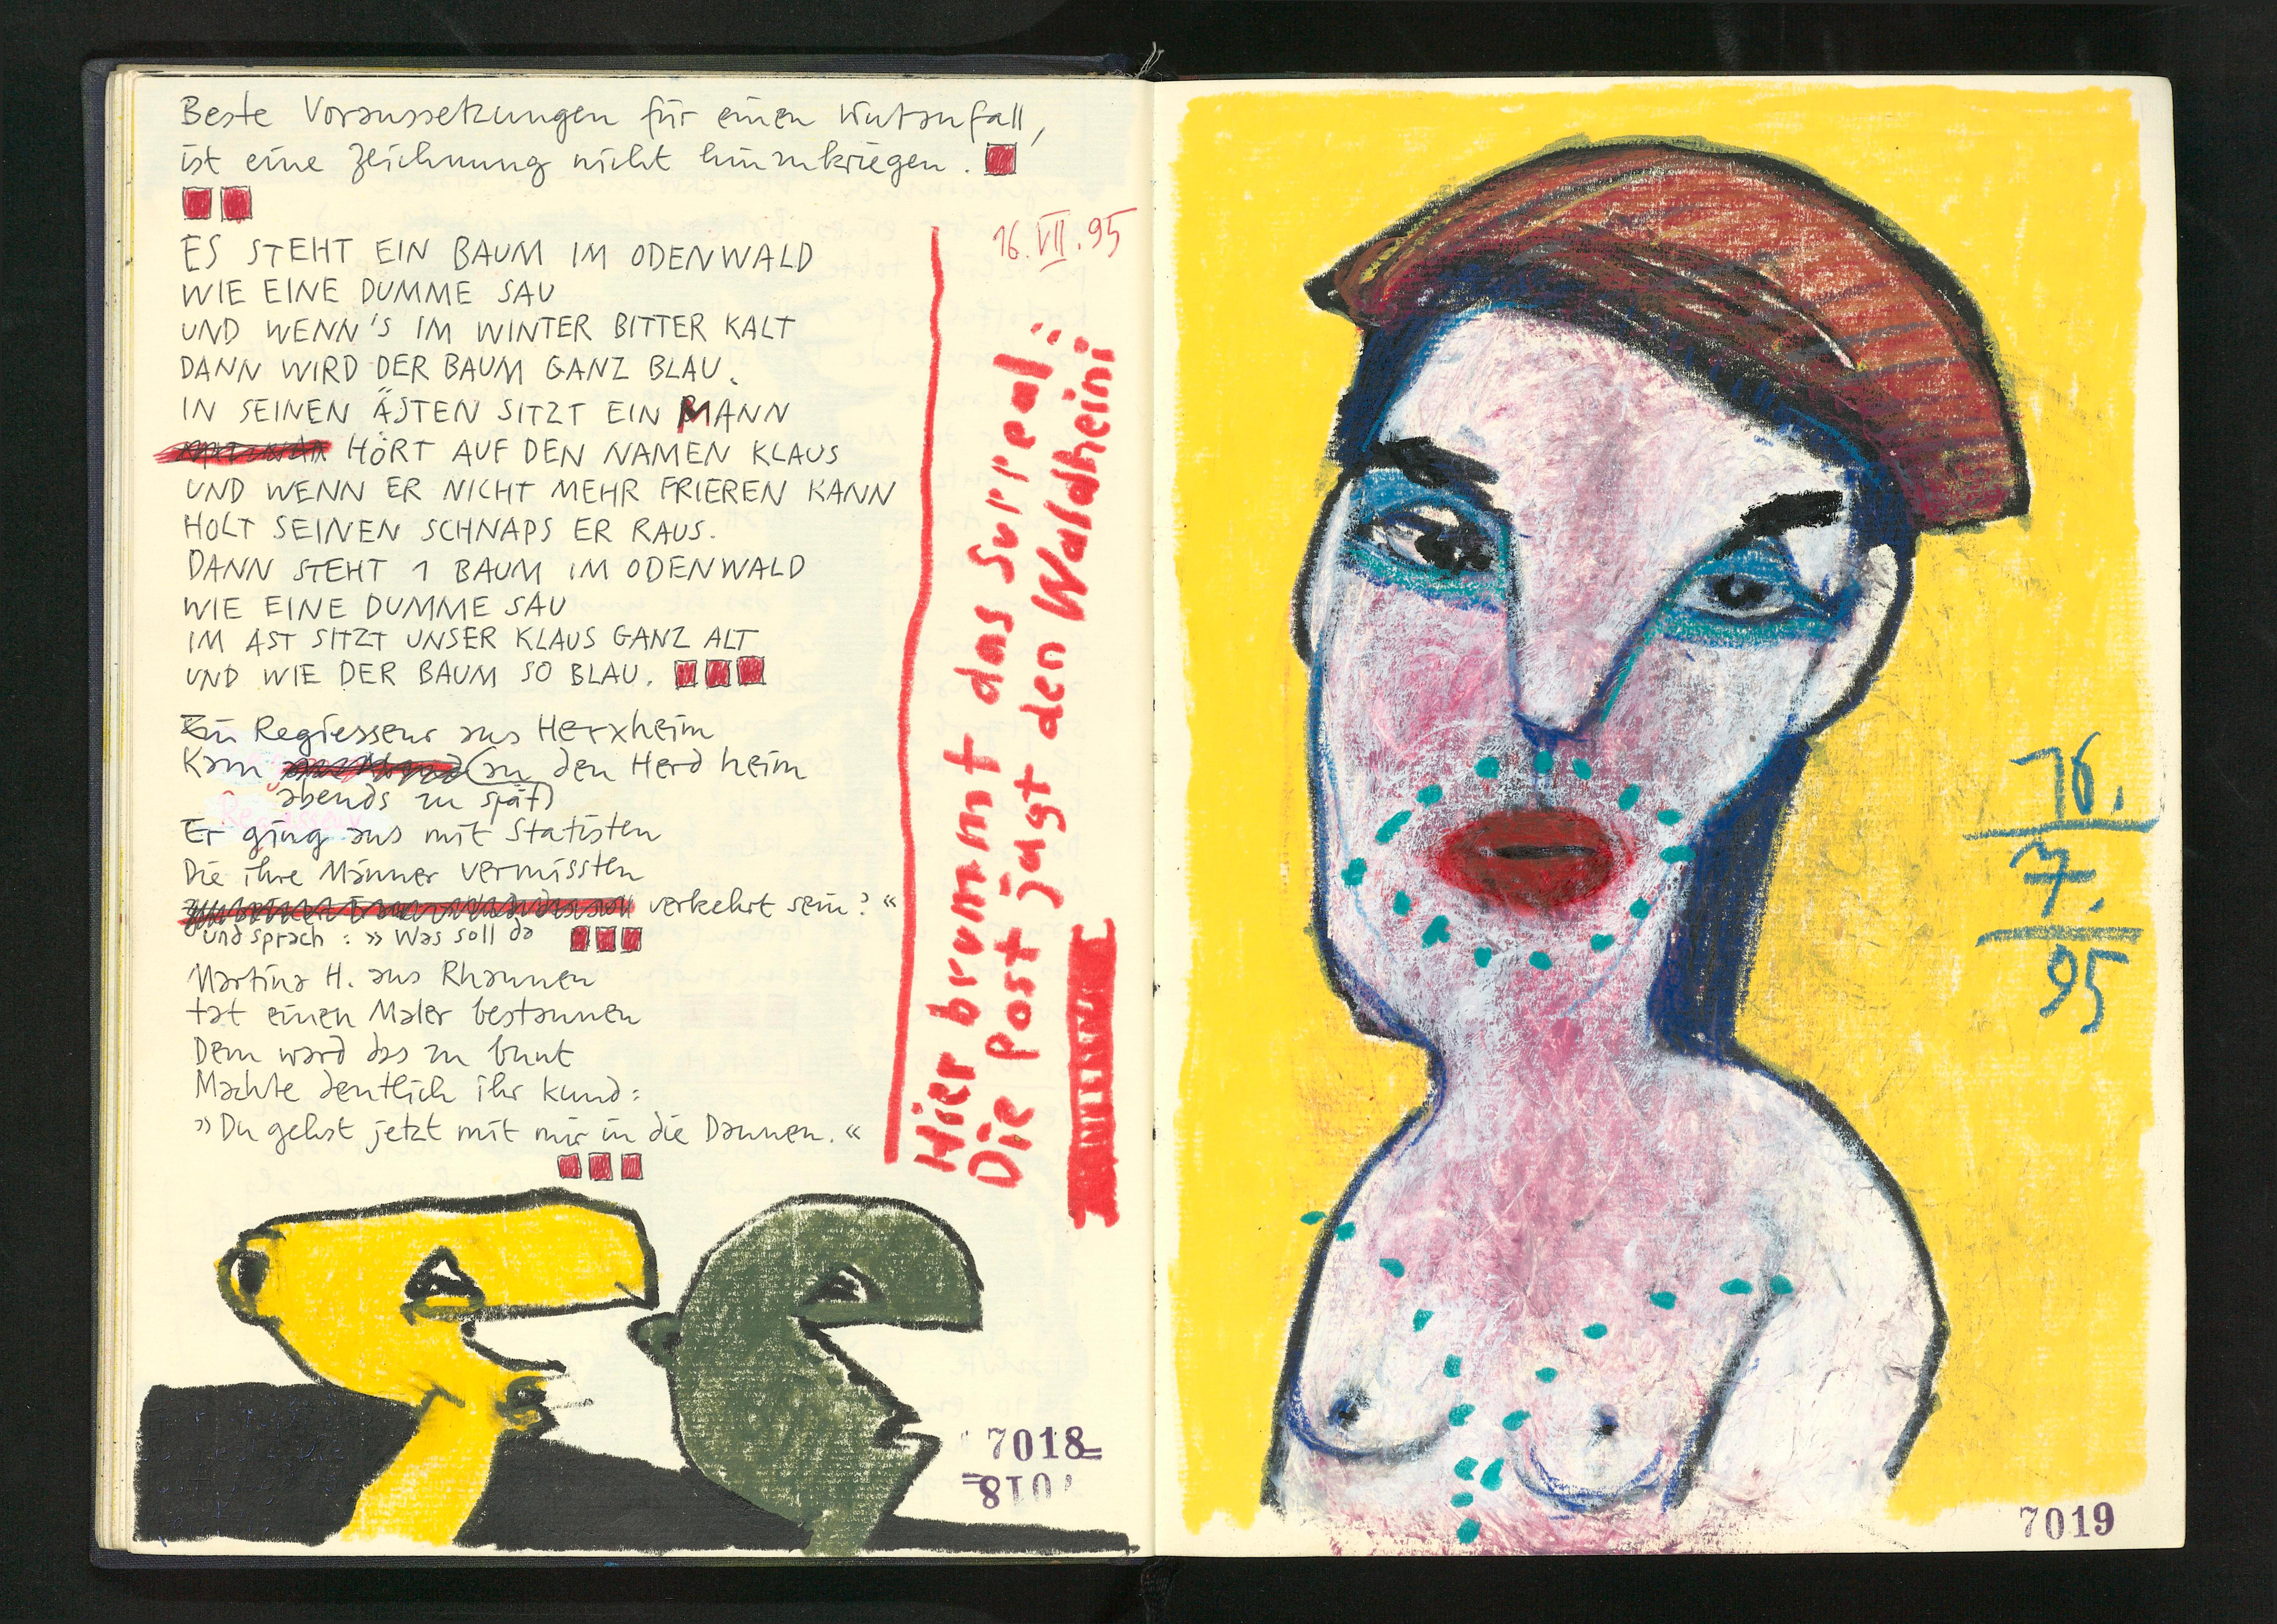 Beste Voraussetzungen für einen Wutanfall,
ist eine Zeichnung nicht hinzukriegen.
16.VII.95
ES STEHT EIN BAUM IM ODENWALD
WIE EINE DUMME SAU
UND WENN'S IM WINTER BITTER KALT
DANN WIRD DER BAUM GANZ BLAU.
IN SEINEN ÄSTEN SITZT EIN MANN
HÖRT AUF DEN NAMEN KLAUS
UND WENN ER NICHT MEHR FRIEREN KANN
HOLT SEINEN SCHNAPS ER RAUS.
DANN STEHT 1 BAUM IM ODENWALD
WIE EINE DUMME SAU
IM AST SITZT UNSER KLAUS GANZ ALT
UND WIE DER BAUM SO BLAU.
Ein Regiesseur aus Herxheim
Kam (an den Herd heim
abends zu spät)
Er ging aus mit Statisten
Die ihre Männer vermissten
verkehrt sein?«
und sprach: »Was soll da
Martina H. aus Rhaunen
tat einen Maler bestaunen
Dem ward das zu bunt
Machte deutlich ihr kund:
»Du gehst jetzt mit mir in die Daunen.«
Hier brummt das surreal:
Die Post jagt den Waldheini
7018
16.
7.
95
7019